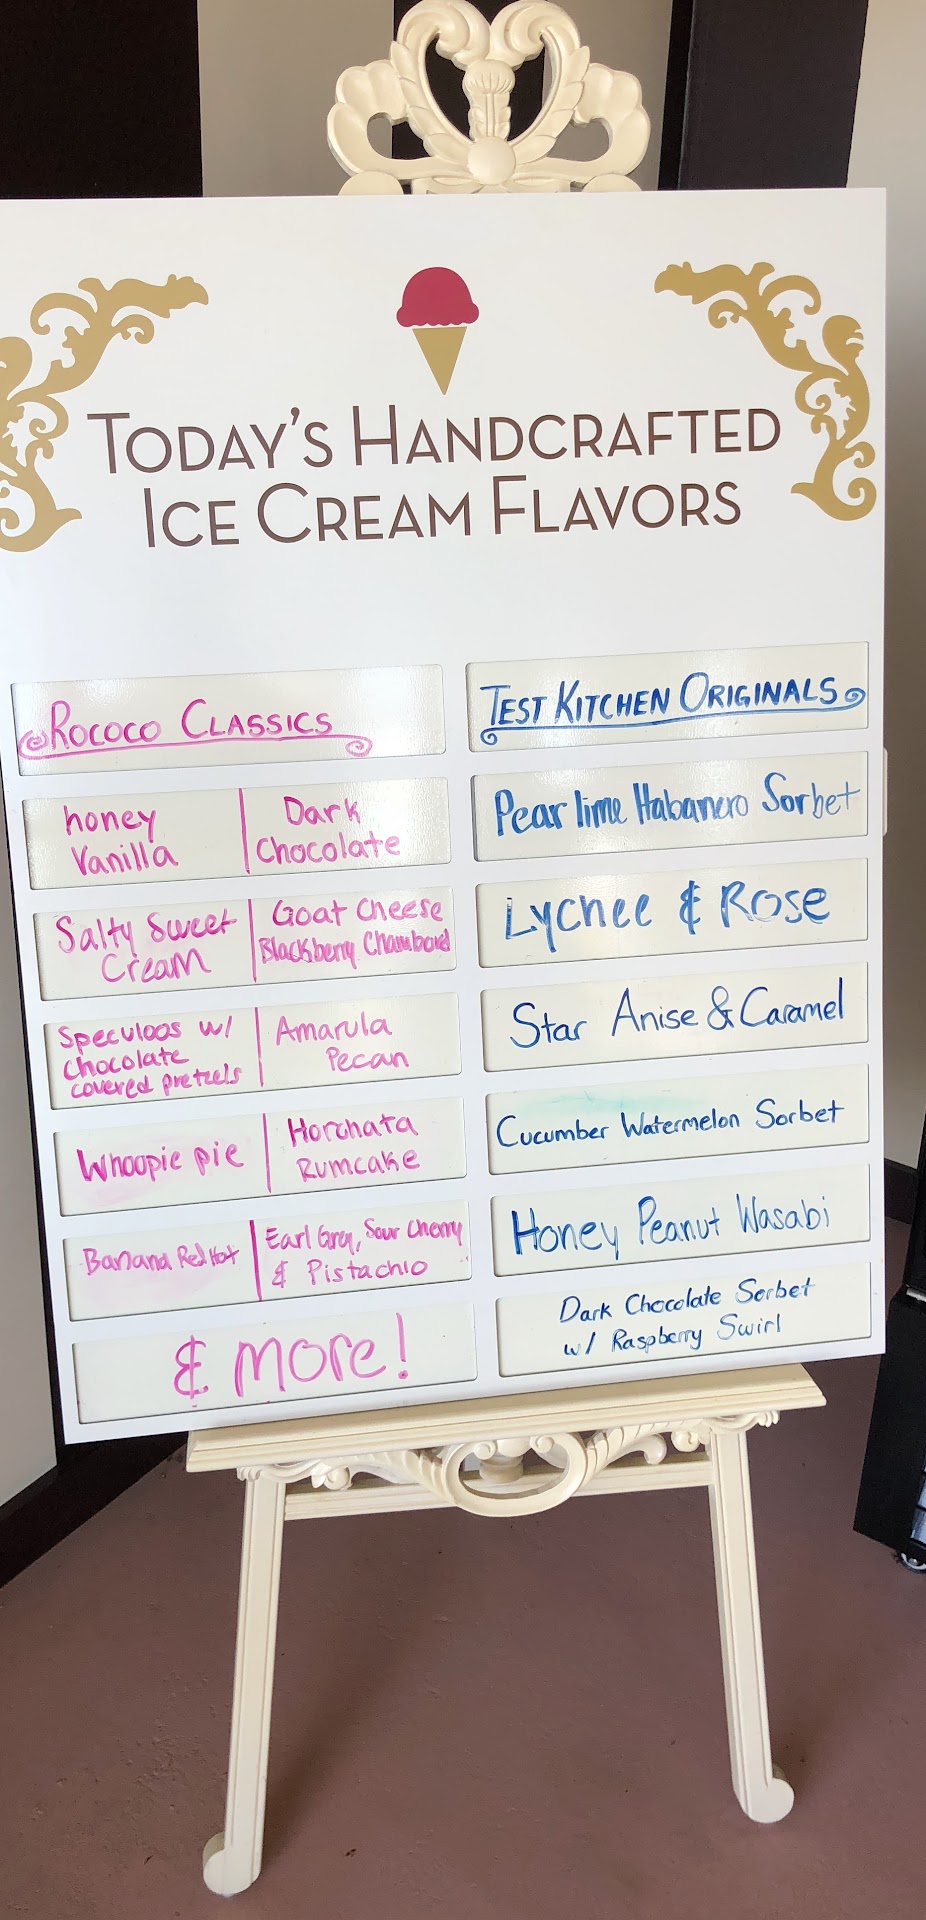 TODAY'S HANDCRAFTED
ICE CREAM FLAVORS
ROCOCO CLASSICS
honey
Vanilla
Dark
Chocolate
Salty Sweet
Cream
Goat Cheese
Blackberry Chambord
Speculoos w/
chocolate
covered pretzels
Amarula
Pecan
Whoopie pie
Horchata
Rumcake
Banana Red Hot
Earl Grey, Sour Cherry
& Pistachio
& more!
TEST KITCHEN ORIGINALS
Pear lime Habanero Sorbet
Lychee & Rose
Star Anise & Caramel
Cucumber Watermelon Sorbet
Honey Peanut Wasabi
Dark Chocolate Sorbet
w/ Raspberry Swirl